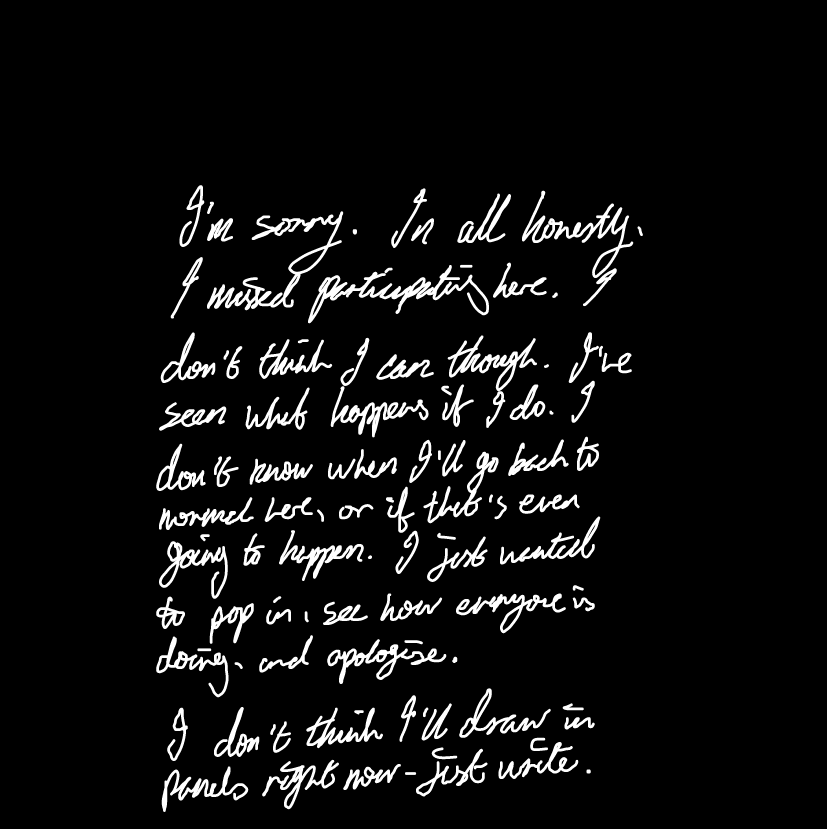 I'm sorry. In all honestly,
I missed participating here. I
don't think I can though. I've
seen what happens if I do. I
don't know when I'll go back to
normal here, or if that's even
going to happen. I just wanted
to pop in, see how everyone is
doing, and apologise.
I don't think I'll draw in
panels right now - just write.